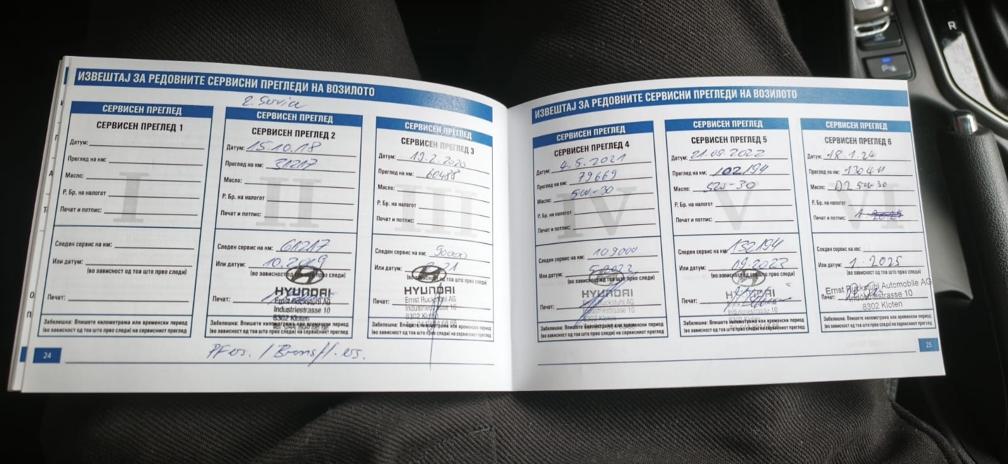 ИЗВЕШТАЈ ЗА РЕДОВНИТЕ СЕРВИСНИ ПРЕГЛЕДИ НА ВОЗИЛОТО
СЕРВИСЕН ПРЕГЛЕД
СЕРВИСЕН ПРЕГЛЕД 1
Датум:
Преглед на км:
Масло:
Р. Бр. на налогот
Печат и потпис:
I
Следен сервис на км:
Или датум:
(во зависност од тоа што прво следи)
Печат:
Забелешка: Впишете километража или временски период
(во зависност од тоа што прво следи) на сервисниот преглед
24
2. Service
СЕРВИСЕН ПРЕГЛЕД
СЕРВИСЕН ПРЕГЛЕД 2
Датум: 15.10.18
Преглед на км: 31217
Масло:
Р. Бр. на налогот
Печат и потпис:
II
Следен сервис на км: 61217
Или датум: 10.2019
(во зависност од тоа што прво следи)
Печат:
HYUNDAI
Ernst Ruckstuhl AG
Industriestrasse 10
8302 Kloten
Забелешка: Впишете километража или временски период
(во зависност од тоа што прво следи) на сервисниот преглед
СЕРВИСЕН ПРЕГЛЕД
СЕРВИСЕН ПРЕГЛЕД 3
Датум: 19.2.2020
Преглед на км:
Масло:
Р. Бр. на налогот
Печат и потпис:
III
Следен сервис на км: 90000
Или датум: 21
(во зависност од тоа што прво следи)
Печат:
HYUNDAI
Ernst Ruckstuhl AG
Industriestrasse 10
8302 Kloten
Забелешка: Впишете километража или временски период
(во зависност од тоа што прво следи) на сервисниот преглед
ИЗВЕШТАЈ ЗА РЕДОВНИТЕ СЕРВИСНИ ПРЕГЛЕДИ НА ВОЗИЛОТО
СЕРВИСЕН ПРЕГЛЕД
СЕРВИСЕН ПРЕГЛЕД 4
Датум: 4.5.2021
Преглед на км: 79669
Масло: 5W-30
Р. Бр. на налогот
Печат и потпис:
IV
Следен сервис на км: 109000
Или датум:
(во зависност од тоа што прво следи)
Печат:
HYUNDAI
Забелешка: Впишете километража или временски период
(во зависност од тоа што прво следи) на сервисниот преглед
СЕРВИСЕН ПРЕГЛЕД
СЕРВИСЕН ПРЕГЛЕД 5
Датум: 21.09.2022
Преглед на км: 102194
Масло: 5W-30
Р. Бр. на налогот
Печат и потпис:
V
Следен сервис на км: 132194
Или датум:
(во зависност од тоа што прво следи)
Печат:
HYUNDAI
Забелешка: Впишете километража или временски период
(во зависност од тоа што прво следи) на сервисниот преглед
СЕРВИСЕН ПРЕГЛЕД
СЕРВИСЕН ПРЕГЛЕД 6
Датум: 18.1.24
Преглед на км:
Масло: 5W-30
Р. Бр. на налогот
Печат и потпис:
VI
Следен сервис на км:
Или датум: 1.2025
(во зависност од тоа што прво следи)
Печат:
Ernst Ruckstuhl Automobile AG
Industriestrasse 10
8302 Kloten
Забелешка: Впишете километража или временски период
(во зависност од тоа што прво следи) на сервисниот преглед
25
P
R